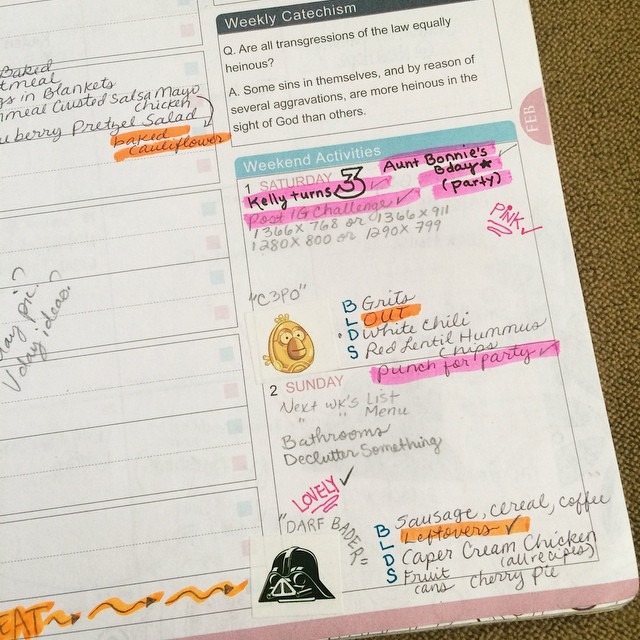 Weekly Catechism
Q. Are all transgressions of the law equally
heinous?
A. Some sins in themselves, and by reason of
several aggravations, are more heinous in the
sight of God than others.
FEB
Baked
in Blankets
Crusted Salsa Mayo
Chicken
Pretzel Salad
baked
cauliflower
day pic?
Vday ideas?
EAT
Weekend Activities
1 SATURDAY
Aunt Bonnie's
Bday
(party)
Kelly turns 33
Post IG Challenge ✓
1366 x 768 or 1366 x 911
1280 x 800 or 1290 x 799
PINK ✓
"C3PO"
B Grits
L OUT
D White Chili
S Red Lentil Hummus
Chips
Punch for party ✓
2 SUNDAY
Next wk's List
" " Menu
Bathrooms
Declutter Something
LOVELY ✓
"DARF BADER"
B Sausage, cereal, coffee
L Leftovers ✓
D Caper Cream Chicken
(allrecipes)
S Fruit Cherry Pie
cans